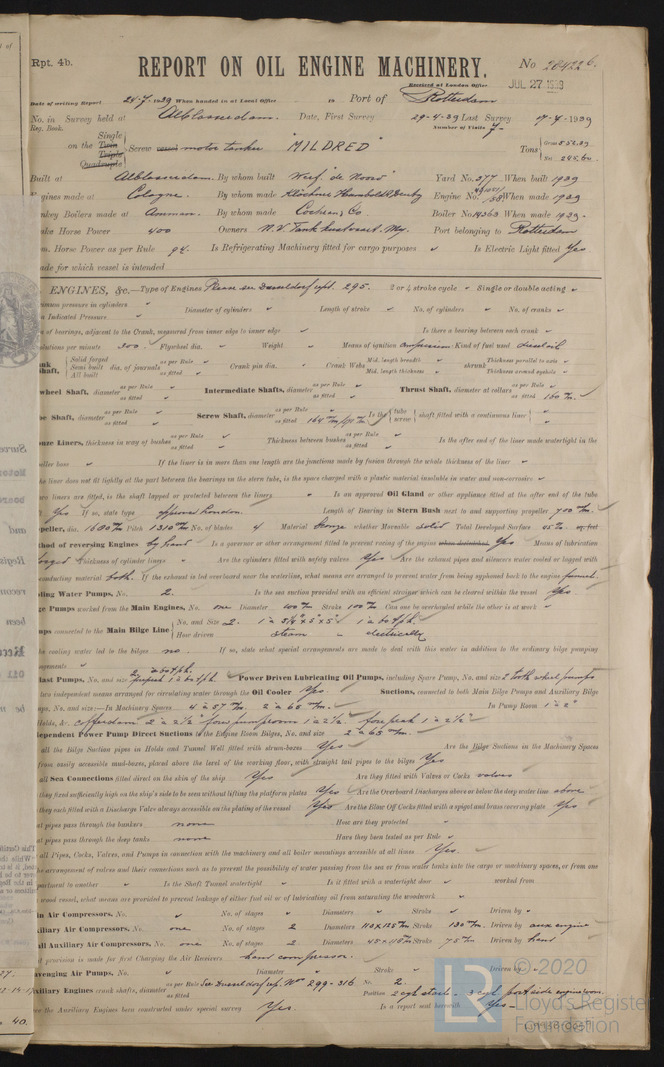 Rpt. 4b.
REPORT ON OIL ENGINE MACHINERY.
No 26422 6.
Received at London Office
JUL 27 1939
Date of writing Report 24-7-1939 When handed in at Local Office Port of Rotterdam
No. in Survey held at Alblasserdam. Date, First Survey 29-4-39 Last Survey 17-7-1939
Reg. Book. Number of Visits 7-
on the Single Twin Triple Quadruple Screw motor tanker "MILDRED" Tons Gross 552.29 Net 245.60
Built at Alblasserdam. By whom built Werf "de Noord" Yard No. 577 When built 1939
Engines made at Cologne. By whom made Klöckner Humboldt Deutz Engine No. When made 1939
nkey Boilers made at Annan. By whom made Cochran & Co Boiler No. 14363 When made 1939-
ake Horse Power 400 Owners N.V. Tank Port belonging to Rotterdam
m. Horse Power as per Rule 94. Is Refrigerating Machinery fitted for cargo purposes Is Electric Light fitted Yes
ade for which vessel is intended
ENGINES, &c.—Type of Engines Please see Dusseldorf rpt. 295. 2 or 4 stroke cycle Single or double acting
ximum pressure in cylinders Diameter of cylinders Length of stroke No. of cylinders No. of cranks
n Indicated Pressure
n of bearings, adjacent to the Crank, measured from inner edge to inner edge Is there a bearing between each crank
olutions per minute 300. Flywheel dia. Weight Means of ignition compression Kind of fuel used diesel oil
ank Shaft, Solid forged Semi built All built dia. of journals as per Rule as fitted Crank pin dia. Crank Webs Mid. length breadth Mid. length thickness shrunk Thickness parallel to axis Thickness around eyehole
wheel Shaft, diameter as per Rule as fitted Intermediate Shafts, diameter as per Rule as fitted Thrust Shaft, diameter at collars as per Rule as fitted 160 m/m.
be Shaft, diameter as per Rule as fitted Screw Shaft, diameter as per Rule as fitted 164 m/m Is the tube screw shaft fitted with a continuous liner
onze Liners, thickness in way of bushes as per Rule as fitted Thickness between bushes as per Rule as fitted Is the after end of the liner made watertight in the
peller boss If the liner is in more than one length are the junctions made by fusion through the whole thickness of the liner
he liner does not fit tightly at the part between the bearings in the stern tube, is the space charged with a plastic material insoluble in water and non-corrosive
wo liners are fitted, is the shaft lapped or protected between the liners Is an approved Oil Gland or other appliance fitted at the after end of the tube
t Yes If so, state type approved London. Length of Bearing in Stern Bush next to and supporting propeller 700 m/m.
opeller, dia. 1600 m/m Pitch 1310 m/m No. of blades 4 Material Bronze whether Moveable solid Total Developed Surface 95%. sq. feet
thod of reversing Engines by hand Is a governor or other arrangement fitted to prevent racing of the engine when declutched Yes Means of lubrication
forced Thickness of cylinder liners Are the cylinders fitted with safety valves Yes Are the exhaust pipes and silencers water cooled or lagged with
conducting material both. If the exhaust is led overboard near the waterline, what means are arranged to prevent water from being syphoned back to the engine funnel.
oling Water Pumps, No. 2. Is the sea suction provided with an efficient strainer which can be cleared within the vessel Yes
ge Pumps worked from the Main Engines, No. one Diameter 100 m/m Stroke 100 m/m Can one be overhauled while the other is at work
mps connected to the Main Bilge Line No. and Size 2. 1 à 5¼" x 5" x 5" 1 à 60 t.p.h.
How driven steam - electrically
he cooling water led to the bilges no. If so, state what special arrangements are made to deal with this water in addition to the ordinary bilge pumping
ngements
llast Pumps, No. and size 2 à 60 t.p.h. forepeak 1 à 60 t.p.h. Power Driven Lubricating Oil Pumps, including Spare Pump, No. and size 2 tooth wheel pumps
two independent means arranged for circulating water through the Oil Cooler Yes Suctions, connected to both Main Bilge Pumps and Auxiliary Bilge
mps, No. and size:—In Machinery Spaces 4 à 57 m/m. 2 à 65 m/m. In Pump Room 1 à 2"
Holds, &c. cofferdam 2 à 2½" fore pumproom 1 à 2½" forepeak 1 à 2½"
dependent Power Pump Direct Suctions to the Engine Room Bilges, No. and size 2 à 65 m/m.
all the Bilge Suction pipes in Holds and Tunnel Well fitted with strum-boxes Yes Are the Bilge Suctions in the Machinery Spaces
from easily accessible mud-boxes, placed above the level of the working floor, with straight tail pipes to the bilges Yes
all Sea Connections fitted direct on the skin of the ship Yes Are they fitted with Valves or Cocks valves
they fixed sufficiently high on the ship's side to be seen without lifting the platform plates Yes Are the Overboard Discharges above or below the deep water line above
they each fitted with a Discharge Valve always accessible on the plating of the vessel Yes Are the Blow Off Cocks fitted with a spigot and brass covering plate Yes
at pipes pass through the bunkers none How are they protected
at pipes pass through the deep tanks none Have they been tested as per Rule
all Pipes, Cocks, Valves, and Pumps in connection with the machinery and all boiler mountings accessible at all times Yes.
he arrangement of valves and their connections such as to prevent the possibility of water passing from the sea or from water tanks into the cargo or machinery spaces, or from one
partment to another Is the Shaft Tunnel watertight Is it fitted with a watertight door worked from
wood vessel, what means are provided to prevent leakage of either fuel oil or of lubricating oil from saturating the woodwork
in Air Compressors, No. No. of stages Diameters Stroke Driven by
xiliary Air Compressors, No. one No. of stages 2 Diameters 110 x 125 m/m Stroke 130 m/m. Driven by aux engine
all Auxiliary Air Compressors, No. one No. of stages 2 Diameters 45 x 110 m/m Stroke 75 m/m. Driven by hand
t provision is made for first Charging the Air Receivers hand compressor.
avenging Air Pumps, No. Diameter Stroke Driven by
xiliary Engines crank shafts, diameter as per Rule as fitted See Dusseldorf rpt. Nos 299-316 No. 2. Position 2 cyl starb. - 3 cyl port side engine room.
ve the Auxiliary Engines been constructed under special survey Yes. Is a report sent herewith Yes-
© 2020
LR
Lloyd's Register
Foundation